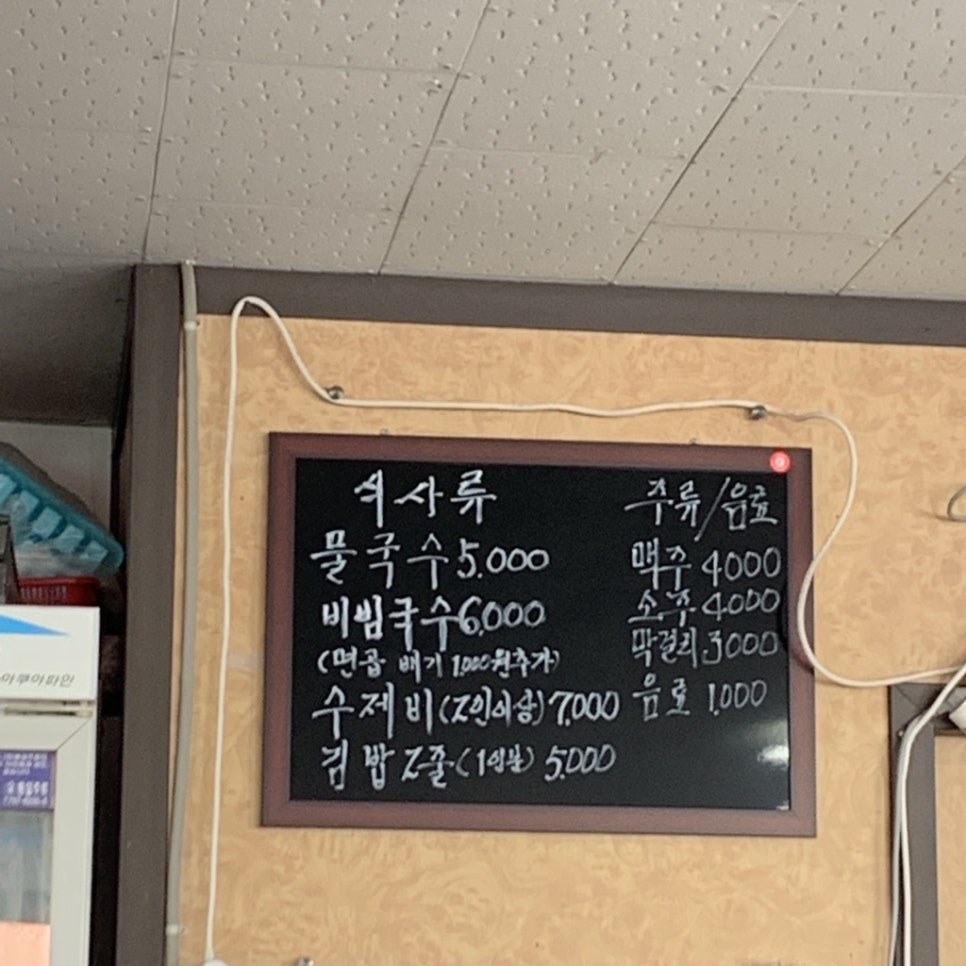 식사류
물국수 5.000
비빔국수 6.000
(면곱배기 1.000원추가)
수제비(2인이상) 7.000
김밥 2줄(1인분) 5.000
주류/음료
맥주 4000
소주 4000
막걸리 3000
음료 1.000
아쿠아파인